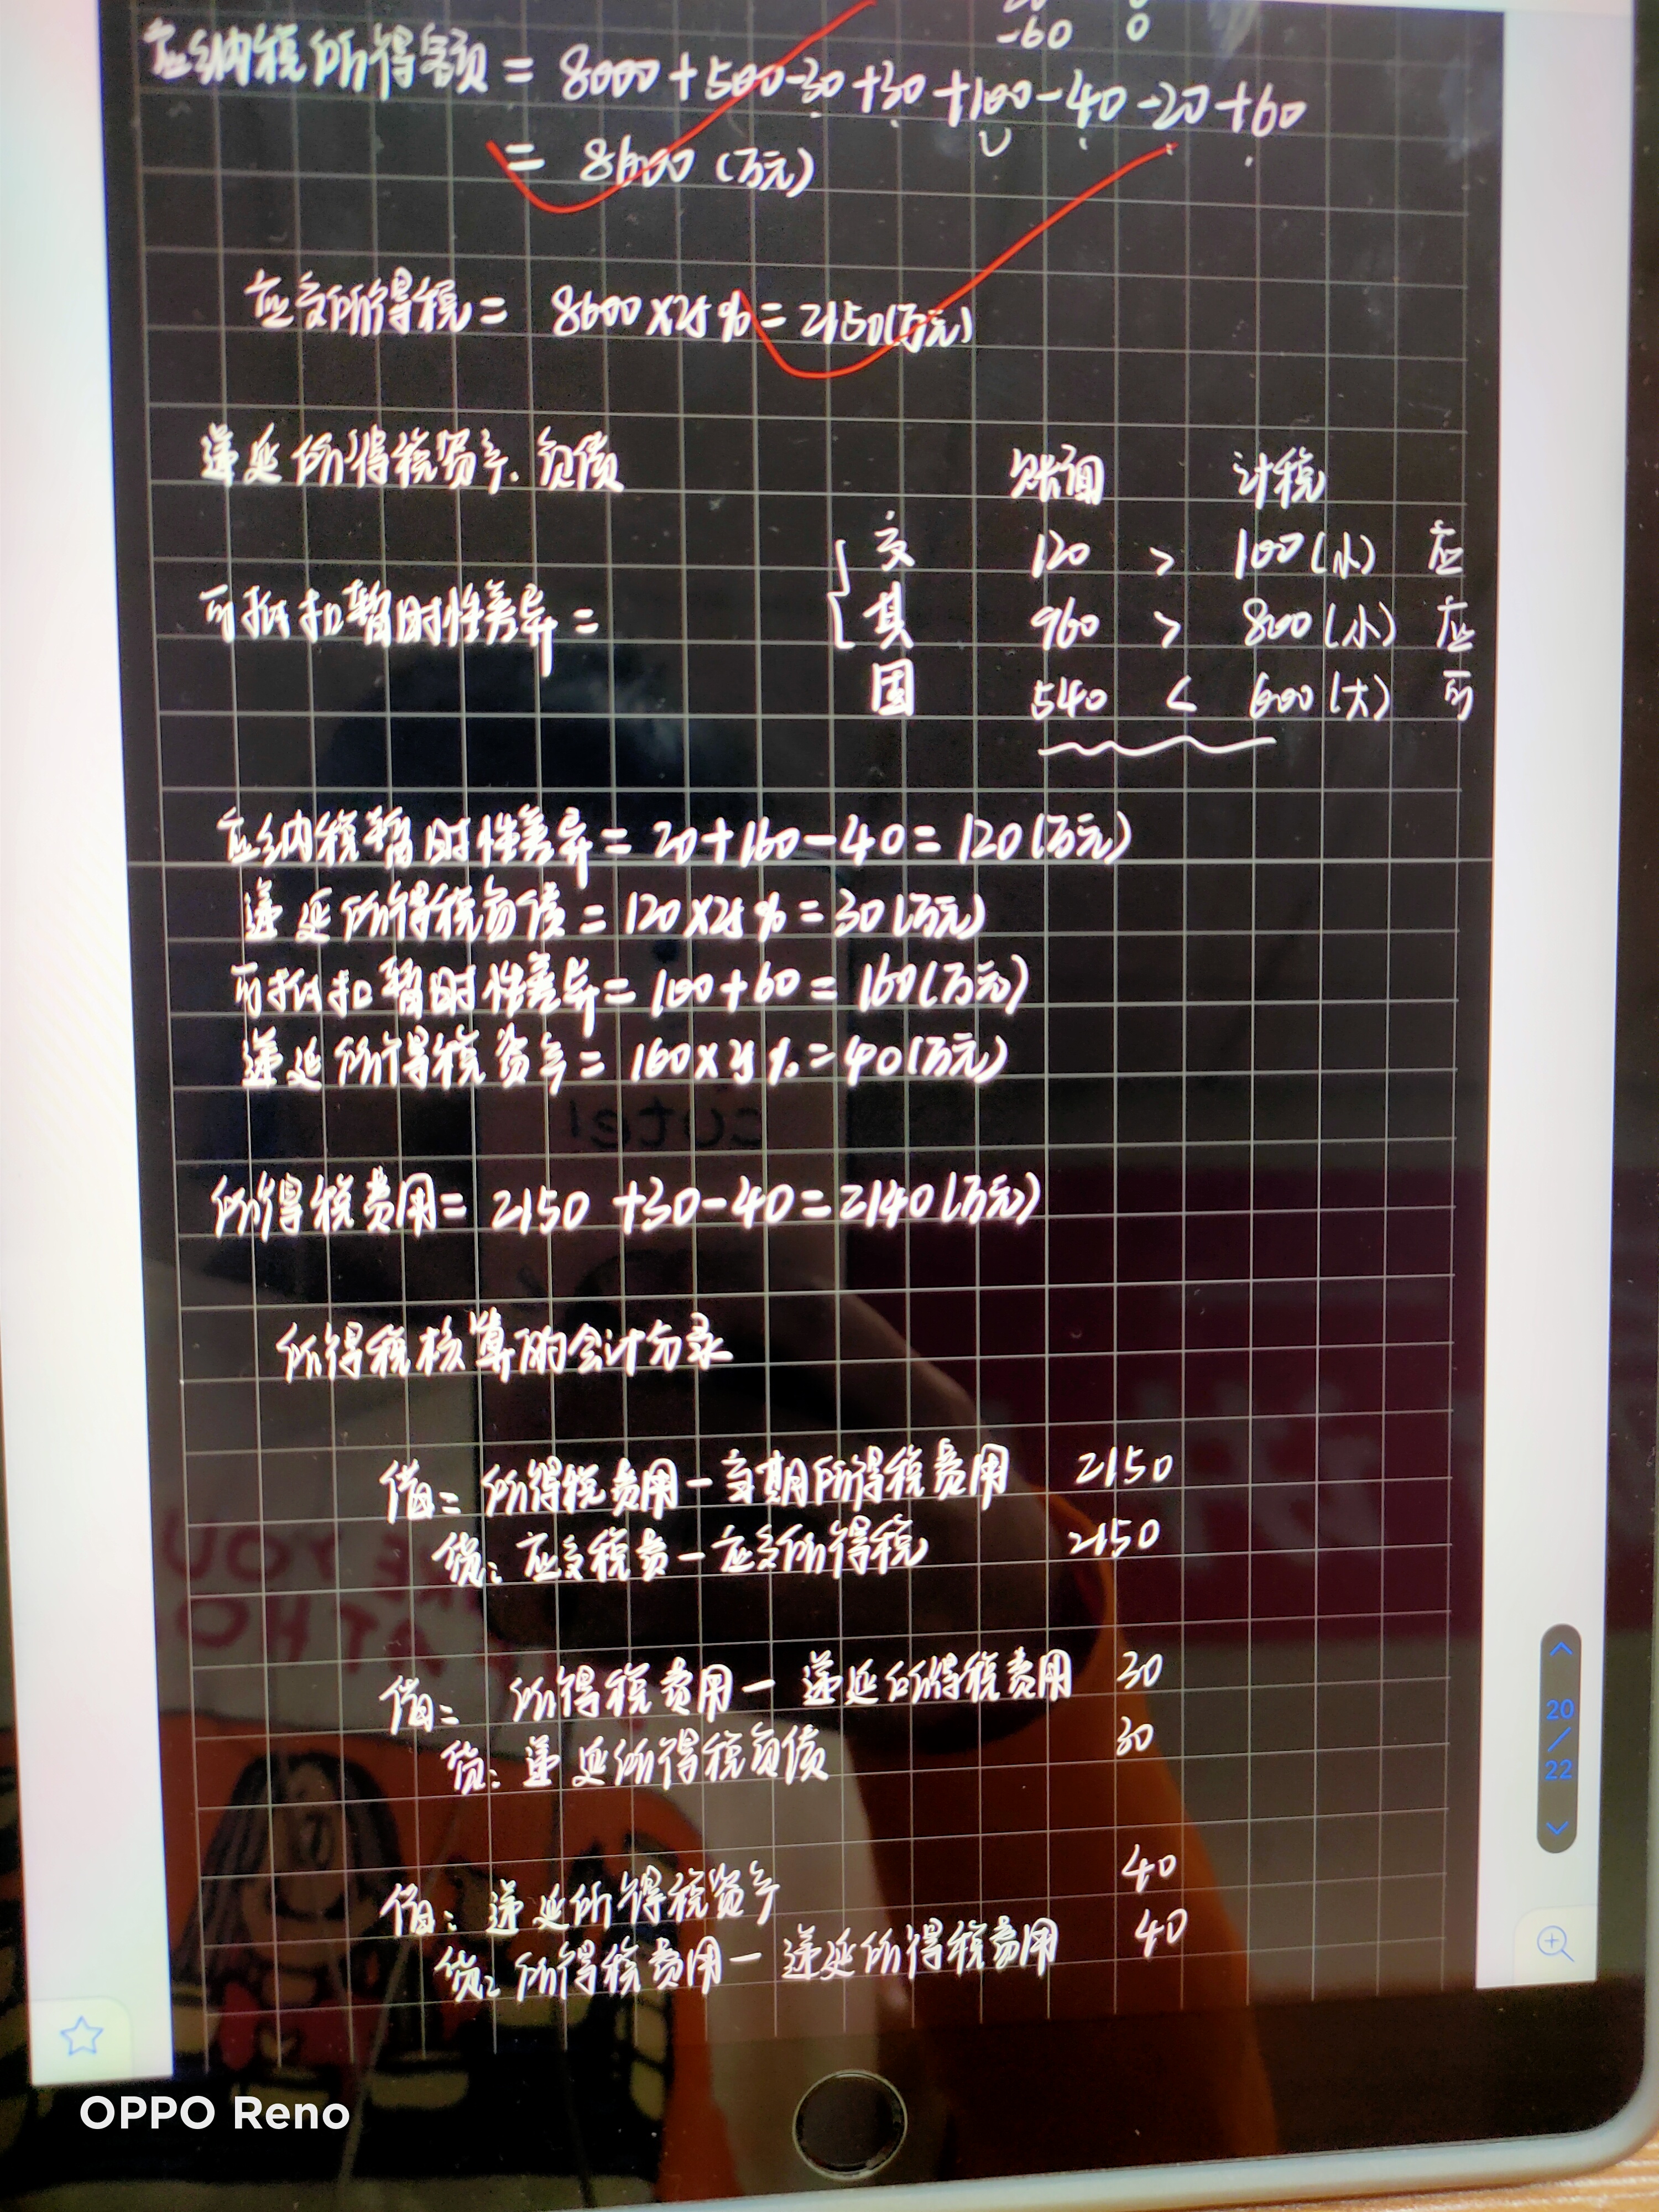 -60 0
应纳税所得额 = 8000+500-30+30+100-40-20+60
= 8600 (万元)
应交所得税 = 8600×25% = 2150(万元)
递延所得税资产、负债 账面 计税
交 120 > 100(小) 应
可抵扣暂时性差异 =
其 960 > 800(小) 应
固 540 < 600(大) 可
应纳税暂时性差异 = 20+160-40 = 120(万元)
递延所得税负债 = 120×25% = 30(万元)
可抵扣暂时性差异 = 100+60 = 160(万元)
递延所得税资产 = 160×25% = 40(万元)
cute!
所得税费用 = 2150 +30-40 = 2140(万元)
所得税核算的会计分录
借: 所得税费用-当期所得税费用 2150
贷: 应交税费-应交所得税 2150
借: 所得税费用- 递延所得税费用 30
贷: 递延所得税负债 30
借: 递延所得税资产 40
贷: 所得税费用- 递延所得税费用 40
20
/
22
OPPO Reno